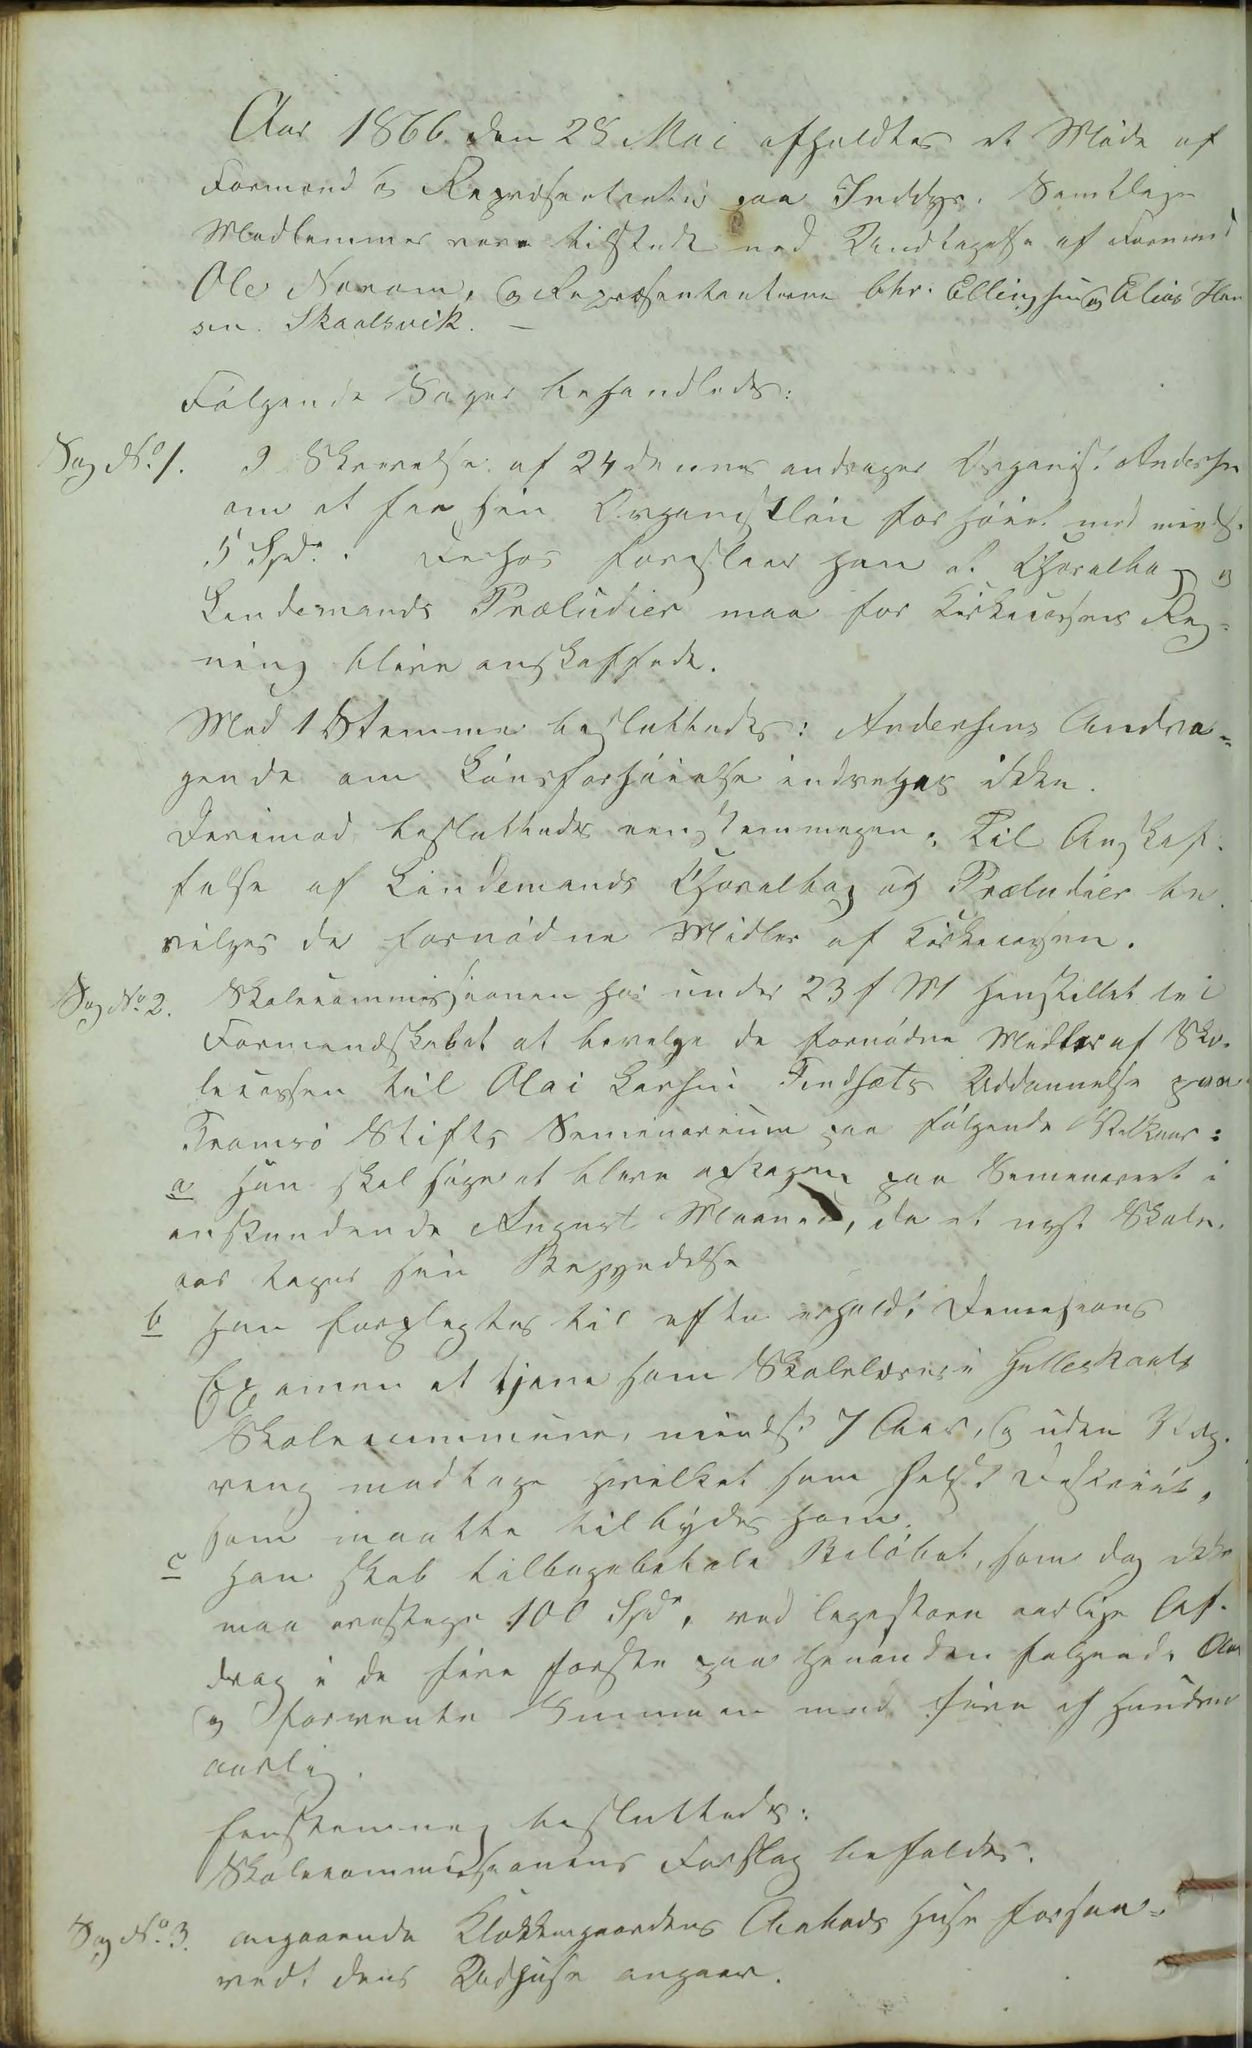 Aar 1866 den 28 Mai afholdtes et Møde af
Formænd og Repræsentanter paa Inddyr. Samtlige
Medlemmer vare tilstede med Undtagelse af Formand
Ole Norum, og Repræsentanterne Chr. Ellingsen og Elias Han
sen Skaalsvik. –
Følgende Sager behandledes:
Sag No 1. I Skrivelse af 24 dennes andrager Organist Andersen
om at faa sin Organistløn forhøiet med mindst
5 Spd. Derhos foreslaar han at Choralbog og
Lindemands Præludier maa for Kirkecassens Reg-
ning blive anskaffede.
Mod 1 Stemme besluttedes: Andersens Andra-
gende om Lønsforhøielse indvilges ikke.
Derimod besluttedes eenstemmigen: Til Anskaf-
felse af Lindemands Choralbog og Præludier be-
vilges de fornødne Midler af Kirkecassen.
Sag No 2. Skolecommissionen har under 23 f M henstillet til
Formandskabet at bevilge de fornødne Midler af Sko-
lecassen til Olai Larsen Findsæts Uddannelse paa
Tromsø Stifts Seminarium paa følgende Vilkaar:
a Han skal søge at blive optagen paa Seminariet i
anstundende August Maaned, da et nyt Skole-
aar tager sin Begyndelse
b Han forpligtes til efter erholdt Dimissions
Examen at tjene som Skolelærer i Gilleskaals
Skolecommune, mindst 7 Aar, og uden Væg-
ring modtage hvilket som helst District,
som maatte tilbydes ham.
c Han skal tilbagebetale Beløbet, som dog ikke
maa overstige 100 Spd, ved ligestore aarlige Af-
drag i de fire første paa hinanden følgende Aar
og forrente Summen med fire af Hundrede
aarlig.
Eenstemmig besluttedes:
Skolecommissionens Forslag bifaldes.
Sag No 3. angaaende Klokkergaardens Aabods Huse forsaa-
vidt dens Udhuse angaar.